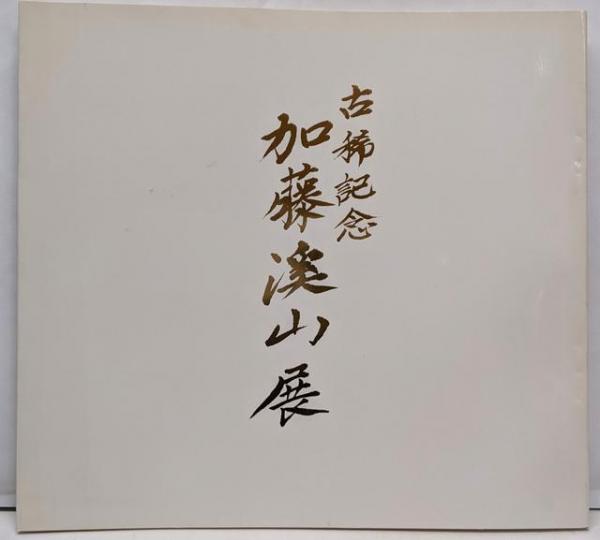 古稀記念
加藤溪山展